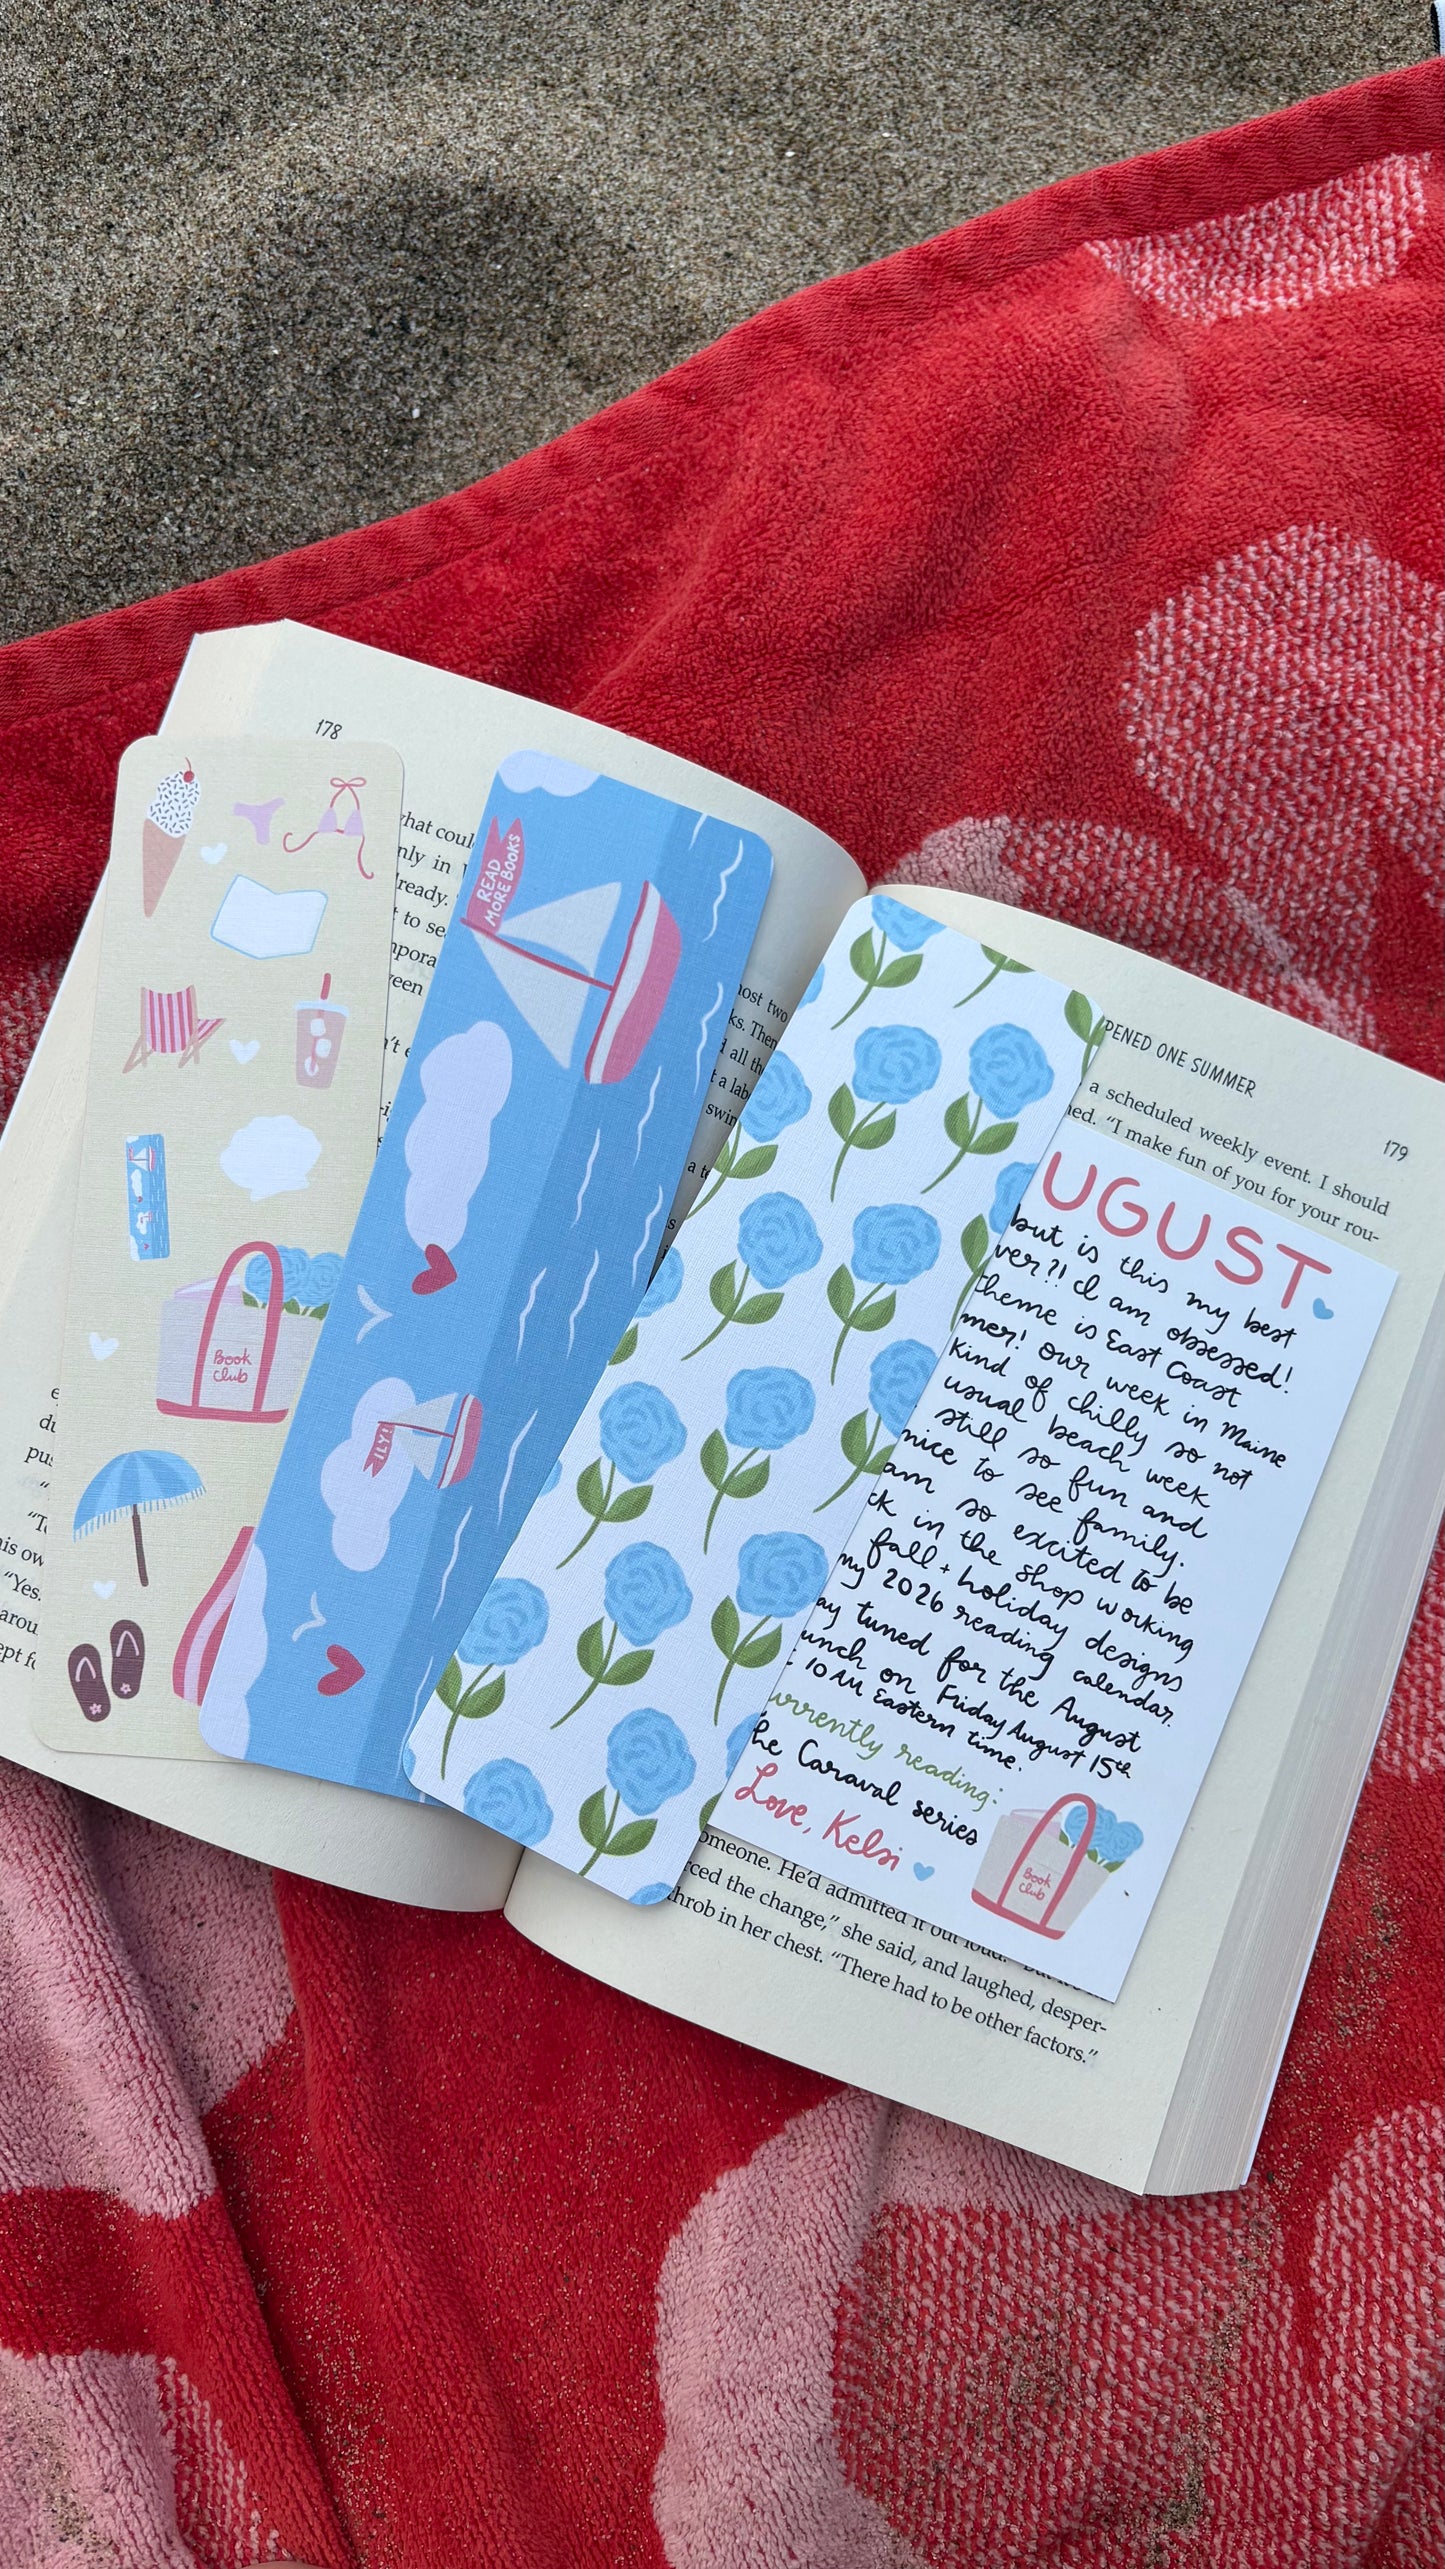 178
what coul
nly in
ready.
t to se
npora
veen
Book
club
"Yes.
READ
MORE BOOKS
ILY!
nost two
ks. Ther
d all th
t a lab
swin
PENED ONE SUMMER
179
a scheduled weekly event. I should
ned. "I make fun of you for your rou-
UGUST
but is this my best
ver?! I am obsessed!
theme is East Coast
mer! Our week in Maine
kind of chilly so not
usual beach week
still so fun and
nice to see family.
am so excited to be
ck in the shop working
fall + holiday designs
my 2026 reading calendar.
ay tuned for the August
unch on Friday August 15th
t 10 AM Eastern time.
urrently reading:
he Caraval series
Love, Kelsi
Book
club
omeone. He'd admitted it out loud.
rced the change," she said, and laughed, desper-
throb in her chest. "There had to be other factors."